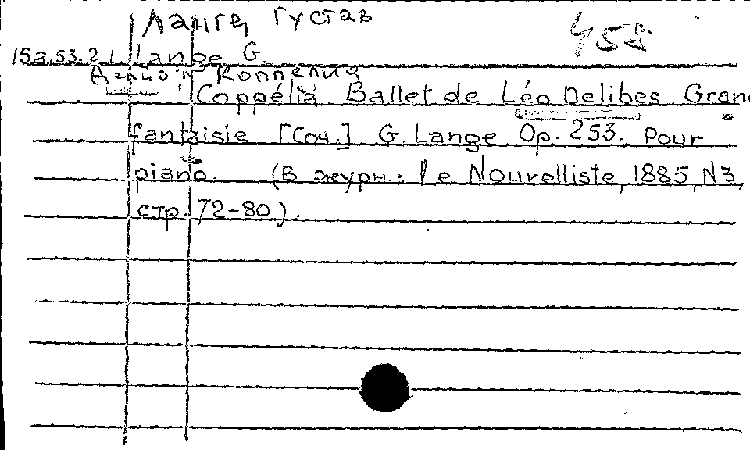 Ланге, Густав 458
15а.53.2 L. Lange G.
Делиб. Коппелия
Coppélia. Ballet de Léo Delibes Gran
fantaisie [Соч.] G. Lange Op. 253. Pour
piano. (В журн.: Le Nouvelliste, 1885, N3,
стр. 72-80.)